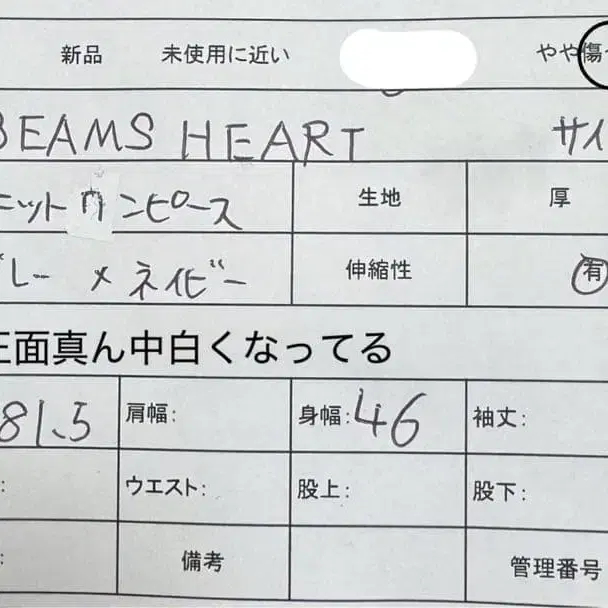 新品 未使用に近い やや傷
BEAMS HEART サイ
ニットワンピース 生地 厚
グレー × ネイビー 伸縮性 有
正面真ん中白くなってる
81.5 肩幅: 身幅: 46 袖丈:
: ウエスト: 股上: 股下:
: 備考 管理番号